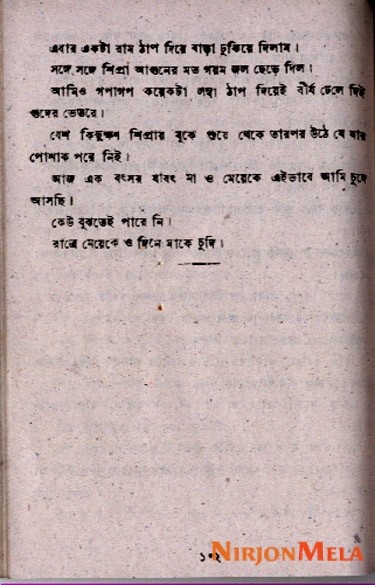 এবার একটা রাম ঠাপ দিয়ে বাড়া ঢুকিয়ে দিলাম।
সঙ্গে সঙ্গে শিপ্রা আগুনের মত গরম জল ছেড়ে দিল।
আমিও গপাগপ কয়েকটা লম্বা ঠাপ দিয়েই বীর্য ঢেলে দিই
গুদের ভেতরে।
বেশ কিছুক্ষণ শিপ্রার বুকে শুয়ে থেকে তারপর উঠে যে যার
পোশাক পরে নিই।
আজ এক বৎসর যাবৎ মা ও মেয়েকে এইভাবে আমি চুদে
আসছি।
কেউ বুঝতেই পারে নি।
রাত্রে মেয়েকে ও দিনে মাকে চুদি।
NIRJONMELA